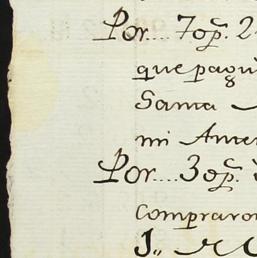 Por.... 7 op.s 2
que pagu
Santa
mi Amer
Por.... 3 op.s
compraron